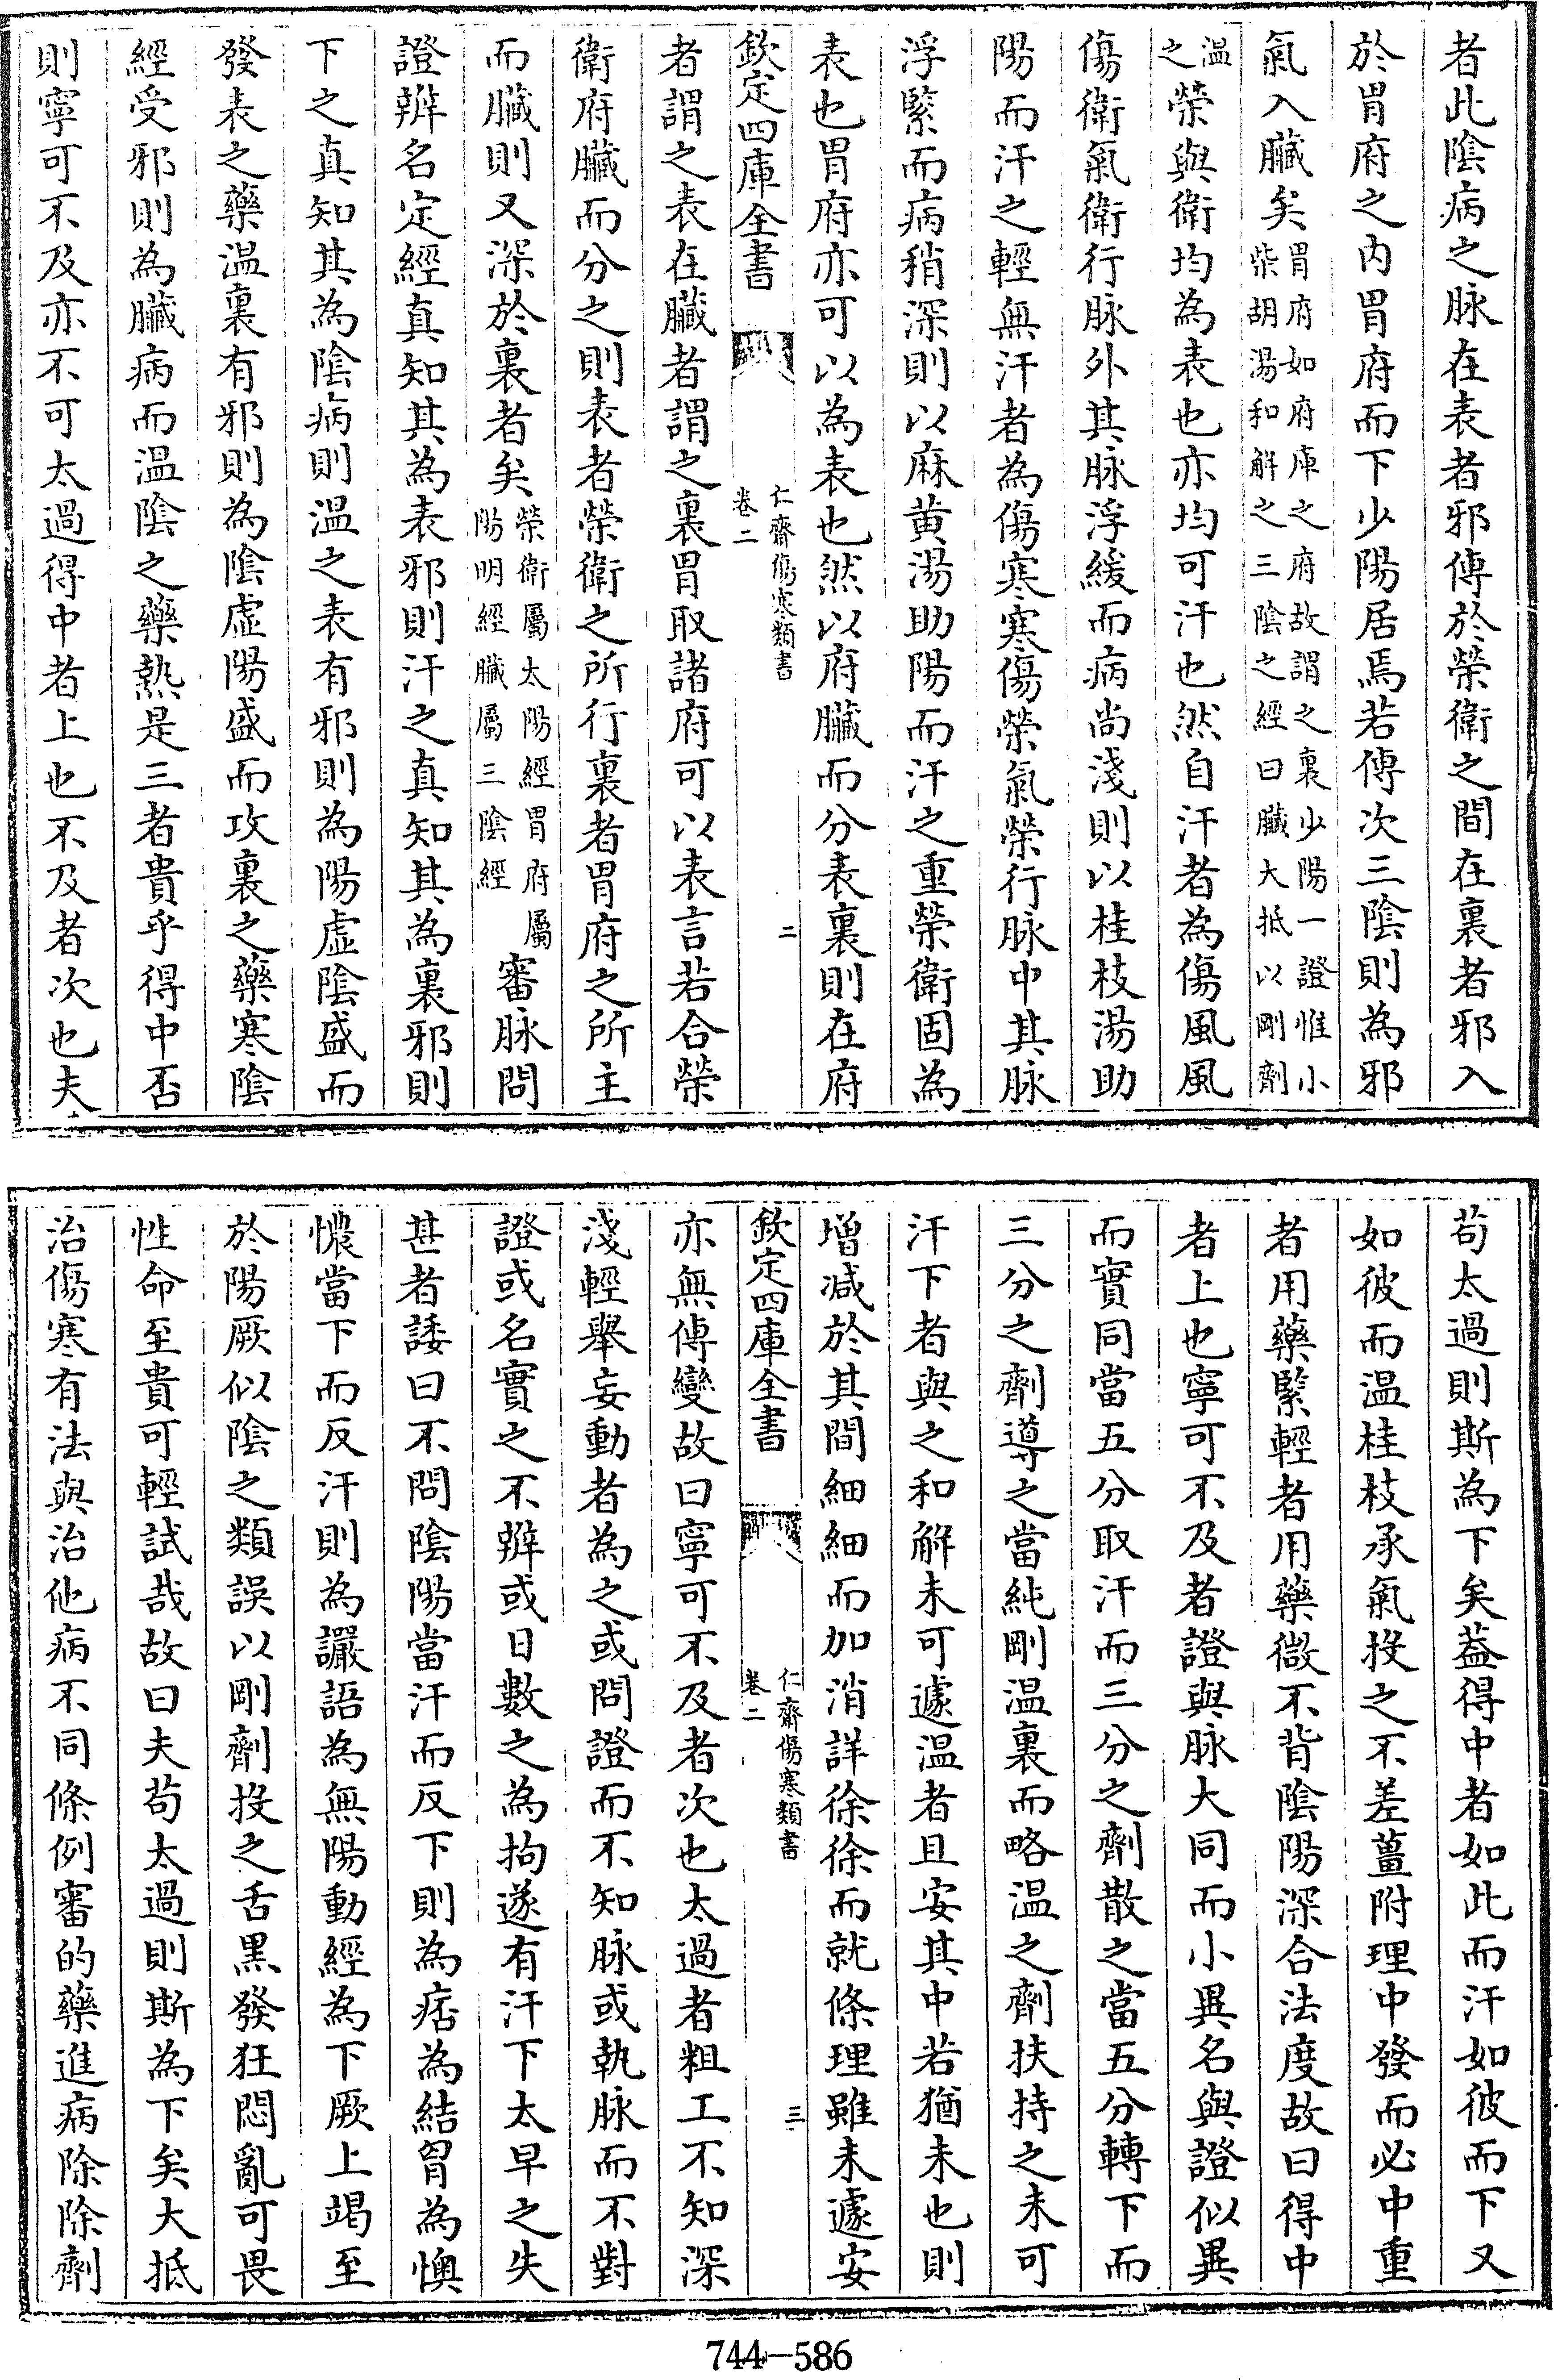 者此隂病之脉在表者邪傳於榮衛之間在裏者邪入
於胃府之内胃府而下少陽居焉若傳次三隂則為邪
氣入臓矣胃府如府庫之府故謂之裏少陽一證惟小
柴胡湯和解之三隂之經曰臓大抵以剛劑
温
之榮與衛均為表也亦均可汗也然自汗者為傷風風
傷衛氣衛行脉外其脉浮緩而病尚淺則以桂枝湯助
陽而汗之輕無汗者為傷寒寒傷榮氣榮行脉中其脉
浮緊而病稍深則以麻黄湯助陽而汗之重榮衛固為
表也胃府亦可以為表也然以府臓而分表裏則在府
欽定四庫全書
仁齋傷寒類書
卷二
二
者謂之表在臓者謂之裏胃取諸府可以表言若合榮
衛府臓而分之則表者榮衛之所行裏者胃府之所主
而臓則又深於裏者矣榮衛屬太陽經胃府屬
陽明經臓屬三隂經
審脉問
證辨名定經真知其為表邪則汗之真知其為裏邪則
下之真知其為隂病則温之表有邪則為陽虚隂盛而
發表之藥温裏有邪則為隂虚陽盛而攻裏之藥寒隂
經受邪則為臓病而温隂之藥熱是三者貴乎得中否
則寧可不及亦不可太過得中者上也不及者次也夫
苟太過則斯為下矣葢得中者如此而汗如彼而下又
如彼而温桂枝承氣投之不差薑附理中發而必中重
者用藥緊輕者用藥微不背隂陽深合法度故曰得中
者上也寧可不及者證與脉大同而小異名與證似異
而實同當五分取汗而三分之劑散之當五分轉下而
三分之劑導之當純剛温裏而略温之劑扶持之未可
汗下者與之和解未可遽温者且安其中若猶未也則
增減於其間細細而加消詳徐徐而就條理雖未遽安
欽定四庫全書
仁齋傷寒類書
卷二
三
亦無傳變故曰寧可不及者次也太過者粗工不知深
淺輕舉妄動者為之或問證而不知脉或執脉而不對
證或名實之不辨或日數之為拘遂有汗下太早之失
甚者諉曰不問隂陽當汗而反下則為痞為結胷為懊
憹當下而反汗則為讝語為無陽動經為下厥上竭至
於陽厥似隂之類誤以剛劑投之舌黒發狂悶亂可畏
性命至貴可輕試哉故曰夫苟太過則斯為下矣大抵
治傷寒有法與治他病不同條例審的藥進病除除劑
744-586